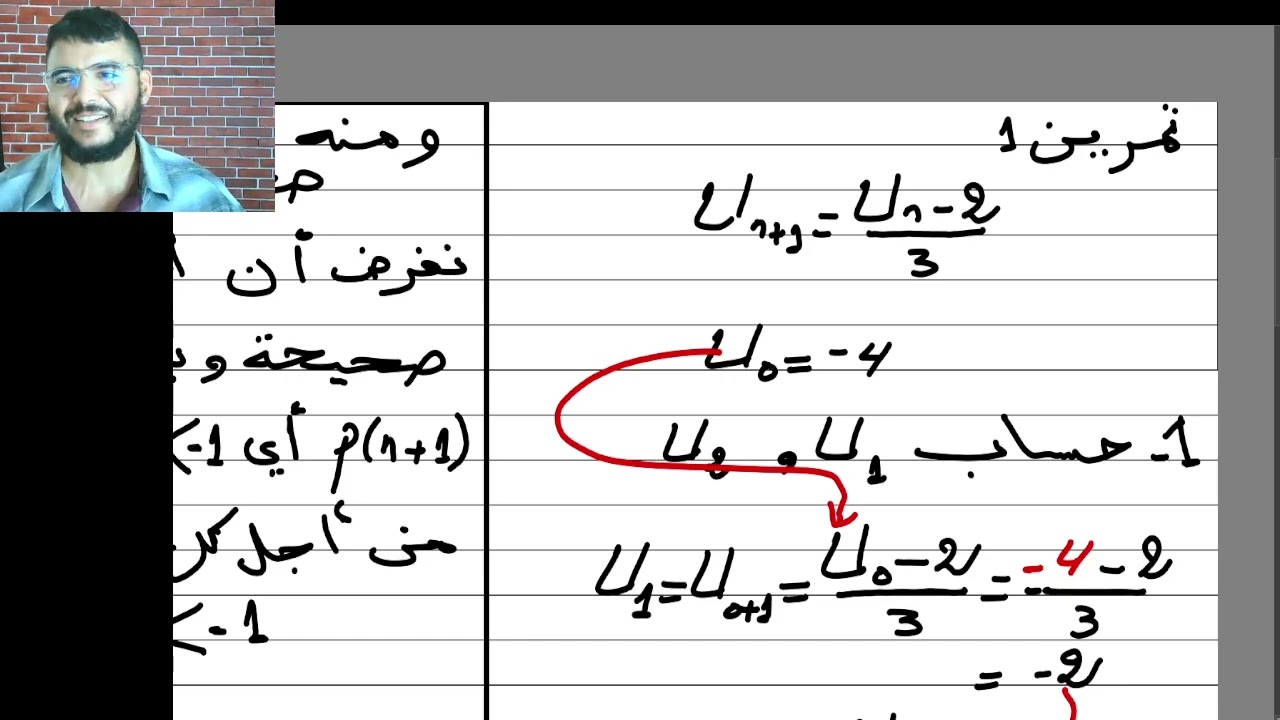 تمرين 1
U_{n+1} = \frac{U_n - 2}{3}
U_0 = -4
1- حساب U_1 و U_2
U_1 = U_{0+1} = \frac{U_0 - 2}{3} = \frac{-4 - 2}{3}
= -2
ومنه
نفرض أن
صحيحة و
p(n+1) أي -1 <
من أجل كل
< -1